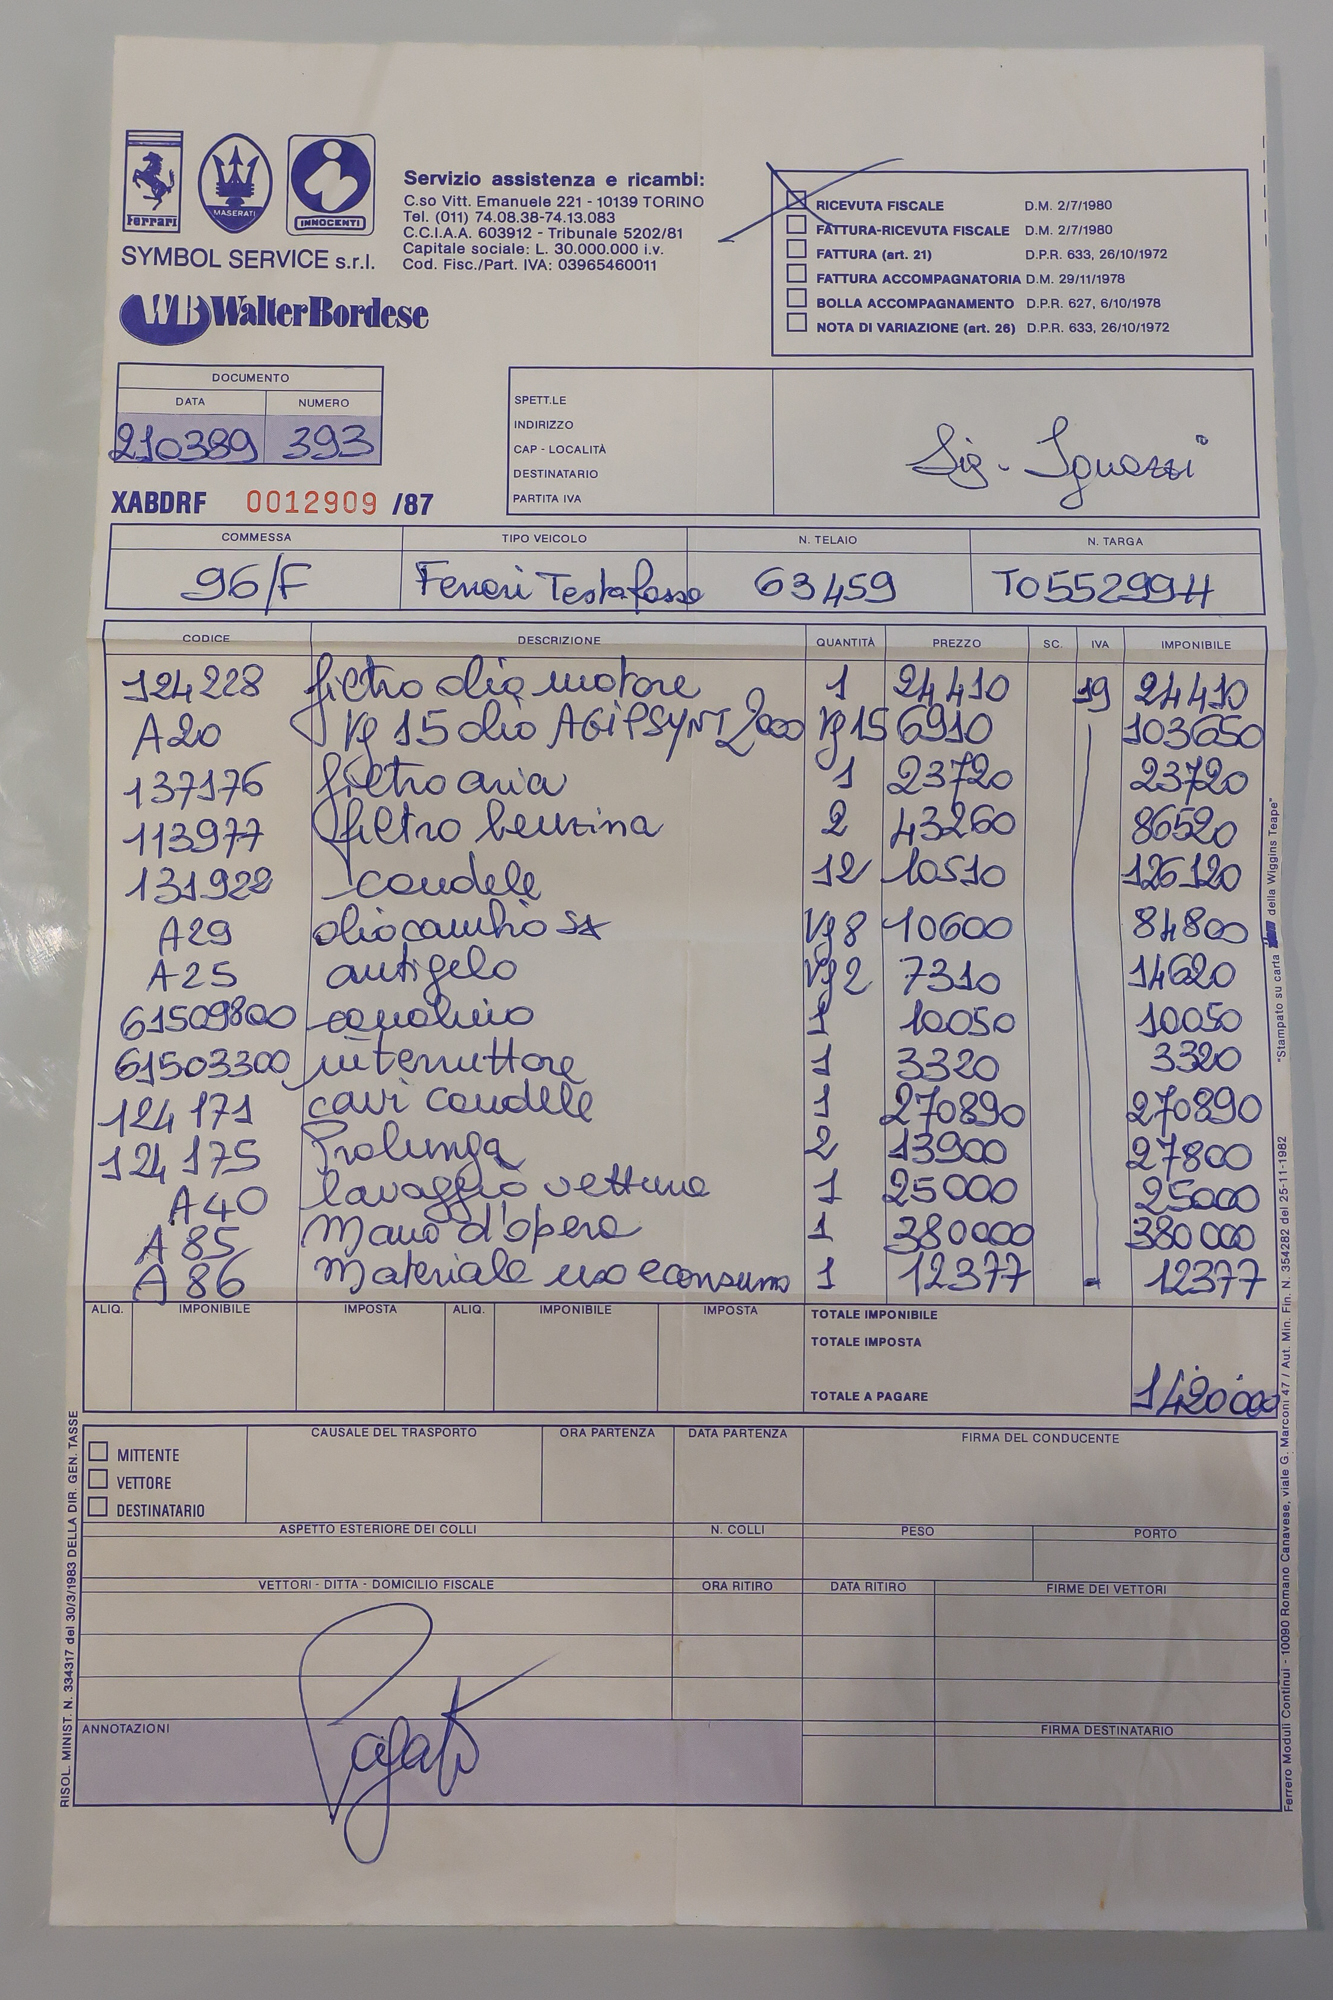 Ferrari
MASERATI
INNOCENTI
SYMBOL SERVICE s.r.l.
WB WalterBordese
Servizio assistenza e ricambi:
C.so Vitt. Emanuele 221 - 10139 TORINO
Tel. (011) 74.08.38-74.13.083
C.C.I.A.A. 603912 - Tribunale 5202/81
Capitale sociale: L. 30.000.000 i.v.
Cod. Fisc./Part. IVA: 03965460011
RICEVUTA FISCALE D.M. 2/7/1980
FATTURA-RICEVUTA FISCALE D.M. 2/7/1980
FATTURA (art. 21) D.P.R. 633, 26/10/1972
FATTURA ACCOMPAGNATORIA D.M. 29/11/1978
BOLLA ACCOMPAGNAMENTO D.P.R. 627, 6/10/1978
NOTA DI VARIAZIONE (art. 26) D.P.R. 633, 26/10/1972
DOCUMENTO
DATA NUMERO
210389 393
XABDRF 0012909 /87
SPETT.LE
INDIRIZZO
CAP - LOCALITÀ
DESTINATARIO
PARTITA IVA
Sig.
COMMESSA TIPO VEICOLO N. TELAIO N. TARGA
96/F Ferrari Testarossa 63459 TO55299H
CODICE DESCRIZIONE QUANTITÀ PREZZO SC. IVA IMPONIBILE
124228 filtro olio motore 1 24410 19 24410
A20 Kg 15 olio AGIPSYNT 2000 Kg 15 6910 103650
137176 filtro aria 1 23720 23720
113977 filtro benzina 2 43260 86520
131922 candele 12 10510 126120
A29 olio cambio sx Kg 8 10600 84800
A25 antigelo Kg 2 7310 14620
61509800 1 10050 10050
61503300 interruttore 1 3320 3320
124171 cavi candele 1 270890 270890
124175 Prolunga 2 13900 27800
A40 lavaggio vettura 1 25000 25000
A85 Mano d'opera 1 380000 380000
A86 Materiale uso e consumo 1 12377 12377
ALIQ. IMPONIBILE IMPOSTA ALIQ. IMPONIBILE IMPOSTA
TOTALE IMPONIBILE
TOTALE IMPOSTA
TOTALE A PAGARE 1420000
MITTENTE
VETTORE
DESTINATARIO
CAUSALE DEL TRASPORTO ORA PARTENZA DATA PARTENZA FIRMA DEL CONDUCENTE
ASPETTO ESTERIORE DEI COLLI N. COLLI PESO PORTO
VETTORI - DITTA - DOMICILIO FISCALE ORA RITIRO DATA RITIRO FIRME DEI VETTORI
ANNOTAZIONI
Pagato
FIRMA DESTINATARIO
RISOL. MINIST. N. 334317 del 30/3/1983 DELLA DIR. GEN. TASSE
Ferrero Moduli Continui - 10090 Romano Canavese, viale G. Marconi 47 / Aut. Min. Fin. N. 354282 del 25-11-1982
"Stampato su carta della Wiggins Teape"